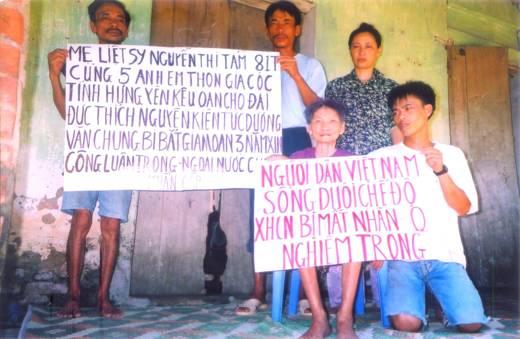 MẸ LIỆT SỸ NGUYỄN THỊ TÁM 81T
CÙNG 5 ANH EM THÔN GIA CỐC
TỈNH HƯNG YÊN KÊU OAN CHO ĐẠI
ĐỨC THÍCH NGUYÊN KIÊN TỨC DƯƠNG
VĂN CHUNG BỊ BẮT GIAM OAN 3 NĂM XIN
CÔNG LUẬN TRONG - NGOÀI NƯỚC
NGƯỜI DÂN VIỆT NAM
SỐNG DƯỚI CHẾ ĐỘ
XHCN BỊ MẤT NHÂN Q
NGHIÊM TRỌNG